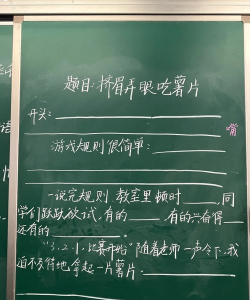 题目:挤眉弄眼吃薯片
开头:
游戏规则很简单:
一说完规则,教室里顿时____,同
学们跃跃欲试,有的____,有的兴奋得____
还有的____。
"3、2、1,比赛开始"随着老师一声令下,我
迫不及待地拿起一片薯片: